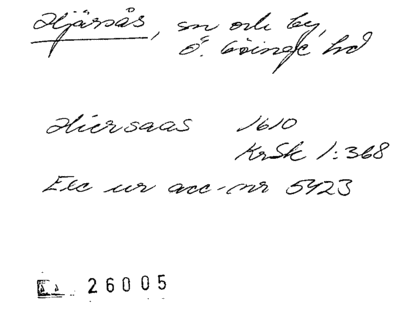 Hjärsås, sn och by,
Ö. Göinge hd
Hiersaas 1610
KrSk 1:368
Exc ur acc.-nr 5923
26005